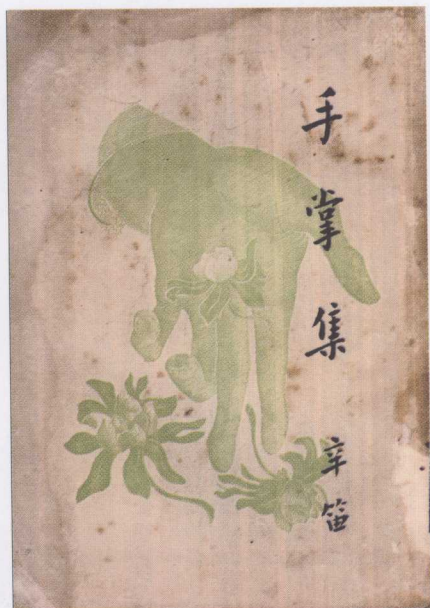 手掌集
辛笛